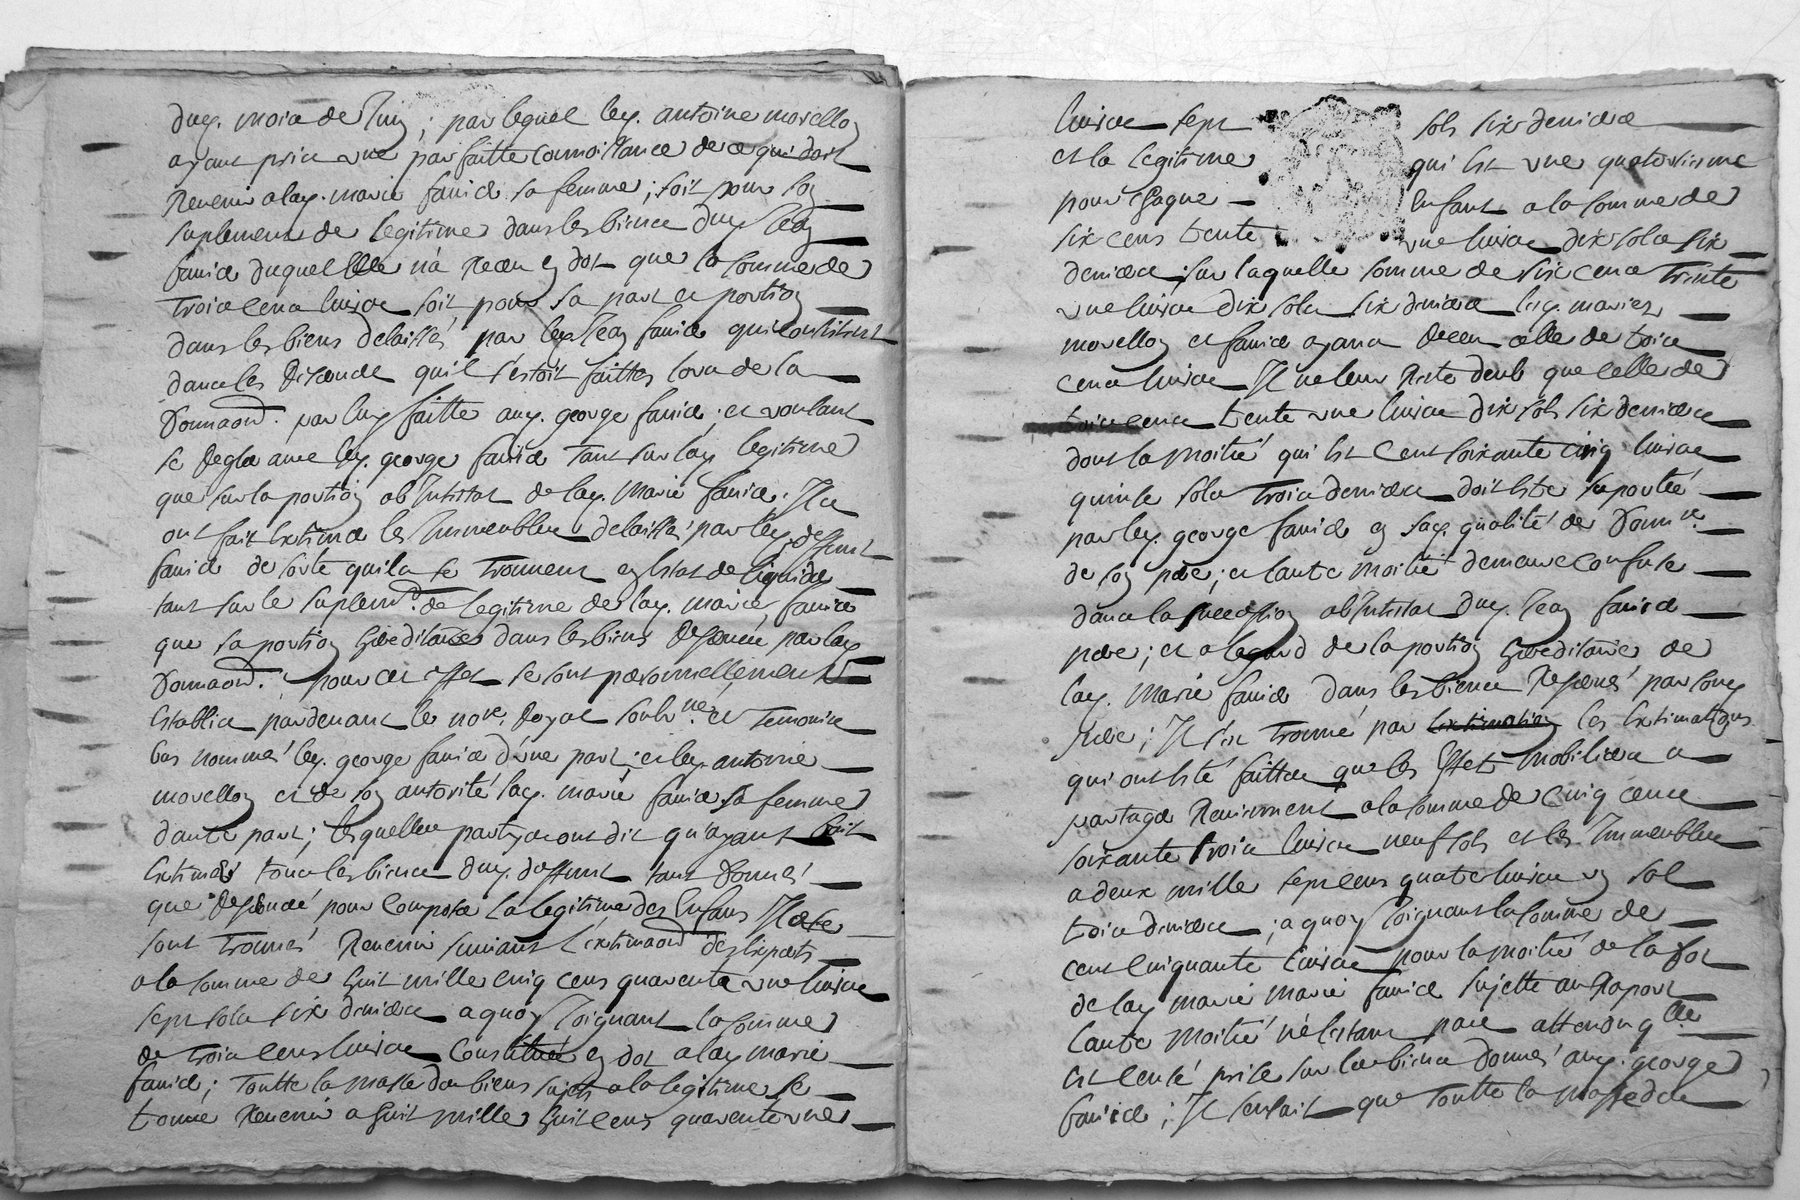 duq. mois de Juin ; par lequel leq. antoine morellon
ayant pris une parfaitte connoissance de ce qui doit
Revenir a laq. marie fauier sa femme ; soit pour son
suplement de legitime dans les biens duq. Jean
fauier duquel elle n'a Receu en dot que la somme de
trois cens livres soit pour sa part et portion
dans les biens delaissés par leq. Jean fauier qui consistent
dans les Reserves qu'il s'estoit faittes lors de la
Donnaon. par luy faitte auq. george fauier ; et voulant
se Regler avec leq. george fauier tant sur laq. legitime
que sur la portion ab Intestat de laq. Marie fauier. Ils
ont fait Extimer les Immeubles delaissés par leq. deffunt
fauier de sorte quils se trouvent en Estat de liquider
tant sur le suplemt. de legitime de laq. marie fauier
que sa portion hereditaire dans les biens Reservés par laq.
Donnaon. ; pour cet effet se sont personnellement
Establis pardevant le nore. Royal soubne. et temoins
bas nommés leq. george fauier d'une part ; et leq. antoine
morellon et de son autorité laq. marie fauier sa femme
dautre part ; lesquelles partyes ont dit qu'ayant fait
Extimer tous les biens duq. deffunt tant donnés
que Reservés pour composer la legitime des Enfans Ils se
sont trouvés Revenir suivant l'extimaon des Experts
a la somme de huit mille cinq cens quarente une livres
sept sols six deniers a quoy Joignant la somme
de trois cens livres Constituée en dot a laq. marie
fauier ; toutte la masse des biens sujets a la legitime se
trouve Revenir a huit mille huit cens quarente une
livres sept sols six deniers
et la legitime qui Est une quatorsieme
pour chaque Enfant a la somme de
six cens trente une livres dix sols six
deniers ; sur laquelle somme de six cens trente
une livres dix sols six deniers lesq. mariez
morellon et fauier ayant Receu celle de trois
cens livres Il ne leur Reste deub que celle de
trois cens trente une livres dix sols six deniers
dont la moitié qui Est Cent soixante cinq livres
quinse sols trois deniers doit Estre suportée
par leq. george fauier en saq. qualité de Donnre.
de son pere ; et lautre moitié demeure confuse
dans la succession ab Intestat duq. Jean fauier
pere ; et a legard de la portion hereditaire de
laq. Marie fauier dans les biens Reservés par sonq.
pere ; Il s'est trouvé par les Extimations
qui ont Esté faittes que les Effets mobiliers a
partager Reviennent a la somme de cinq cens
soixante trois livres neuf sols et les Immeubles
a deux mille sept cens quatre livres un sol
trois deniers ; a quoy Joignant la somme de
cent cinquante livres pour la moitié de la dot
de laq. marie marie fauier sujette au Raport
lautre moitié n'estant pas attendu qlle
Est censé prise sur les biens donnés auq. george
fauier ; Il sensuit que toutte la masse des